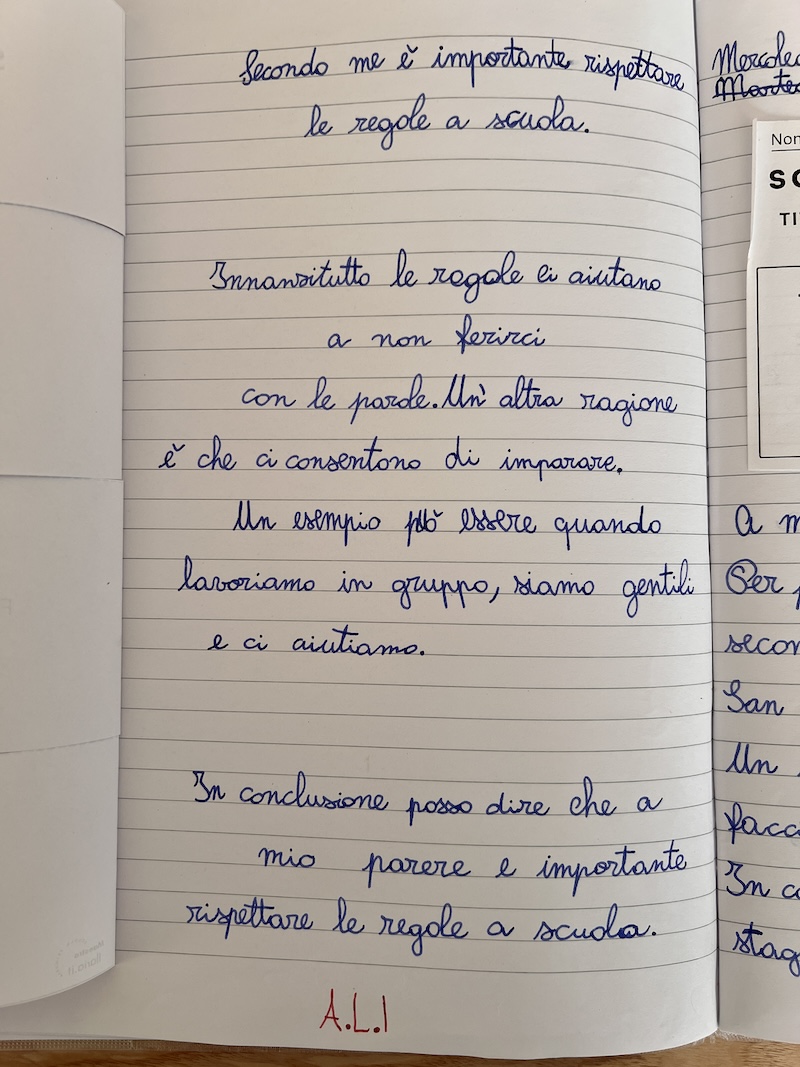 Secondo me è importante rispettare
le regole a scuola.
Innanzitutto le regole ci aiutano
a non ferirci
con le parole. Un' altra ragione
è che ci consentono di imparare.
Un esempio può essere quando
lavoriamo in gruppo, siamo gentili
e ci aiutiamo.
In conclusione posso dire che a
mio parere e importante
rispettare le regole a scuola.
A.L.I
Mercoled
Non
SC
TI
A m
Per p
secon
San
Un
facc
In co
stag